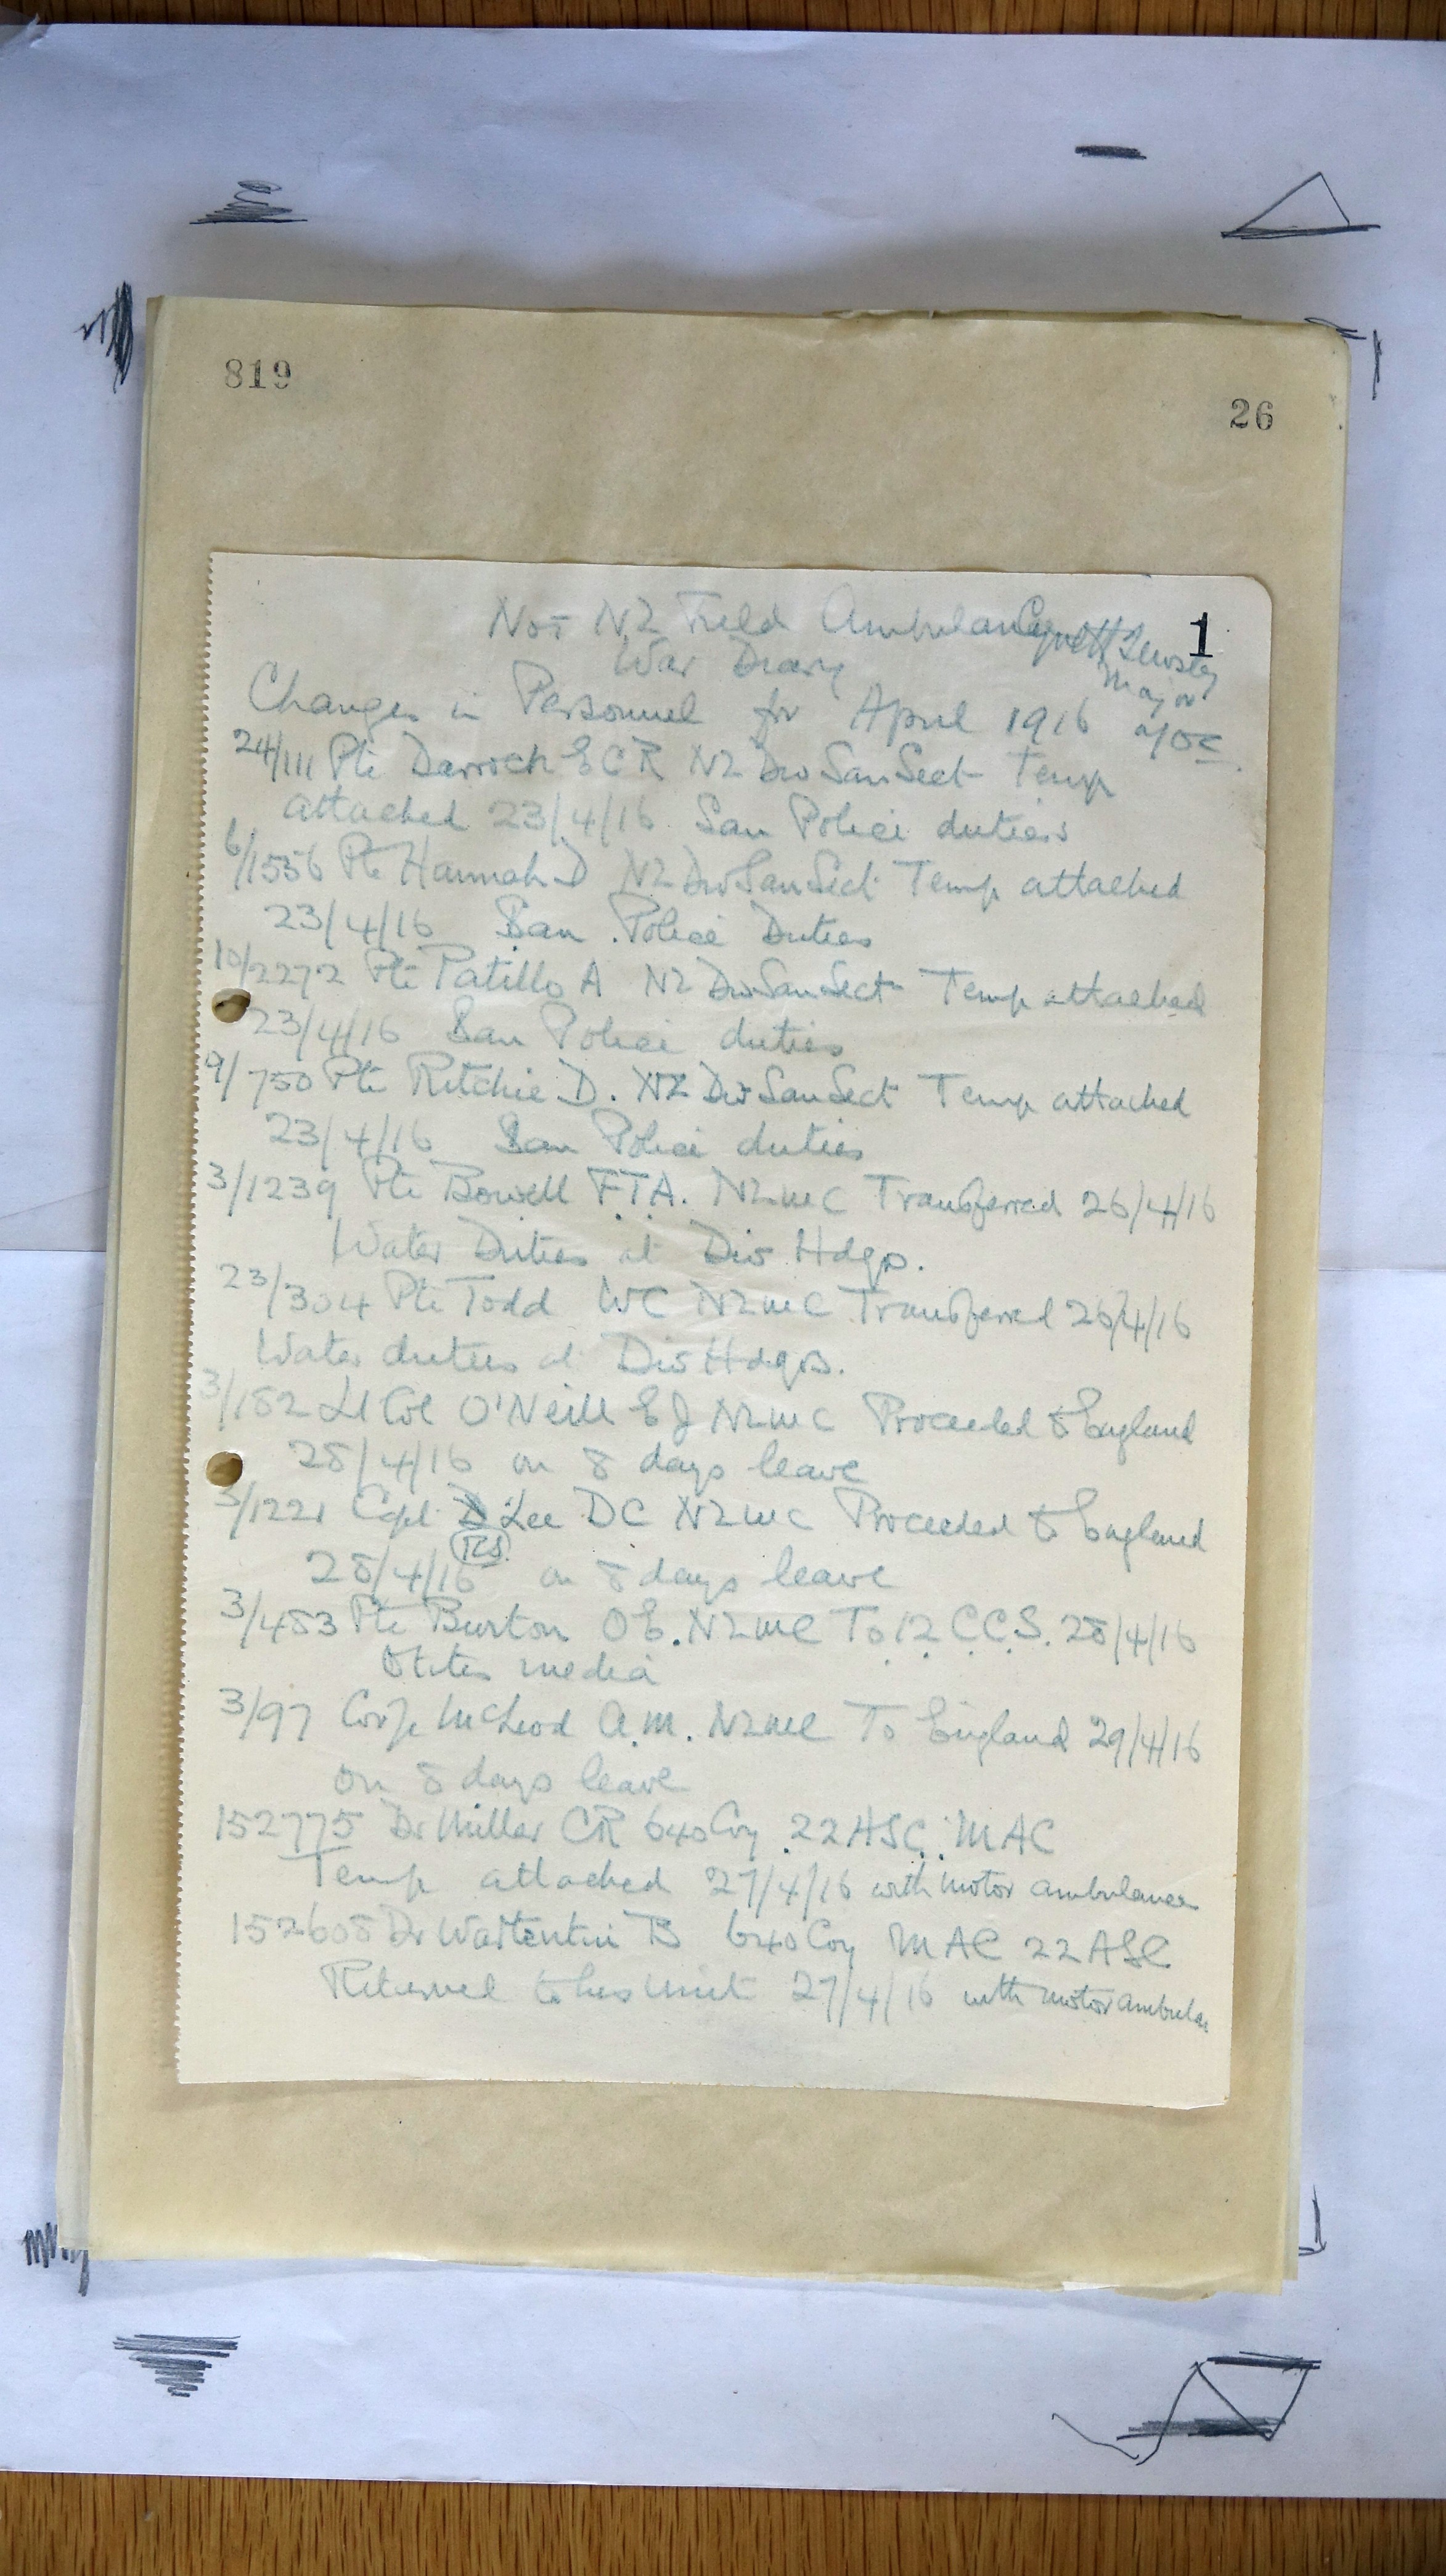 819
26
No 1 NZ Field Ambulance
1
War Diary
Major
a/OC
Changes in Personnel for April 1916
24/111 Pte Darroch E C R NZ Div San Sect Temp
attached 23/4/16 San Police duties
6/1556 Pte Hannah D NZ Div San Sect Temp attached
23/4/16 San Police Duties
10/2272 Pte Patillo A NZ Div San Sect Temp attached
23/4/16 San Police duties
9/750 Pte Ritchie D. NZ Div San Sect Temp attached
23/4/16 San Police duties
3/1239 Pte Bowell F T A. NZMC Transferred 26/4/16
Water Duties at Div Hdqrs.
23/304 Pte Todd WC NZMC Transferred 26/4/16
Water duties at Div Hdqrs.
3/182 Lt Col O'Neill E J NZMC Proceeded to England
28/4/16 on 8 days leave
3/1221 Cpl Lee DC NZMC Proceeded to England
28/4/16 on 8 days leave
3/483 Pte Burton O E. NZMC To 12 C.C.S. 28/4/16
Otitis media
3/97 Corp McLeod A.M. NZMC To England 29/4/16
on 8 days leave
152775 Dr Miller CR 640 Coy 22 ASC. MAC
Temp attached 27/4/16 with motor ambulance
152608 Dr B 640 Coy MAC 22 ASC
Returned to his unit 27/4/16 with motor ambulance